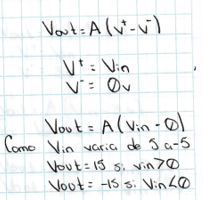 Vout = A (V⁺ - V⁻)
V⁺ = Vin
V⁻ = 0v
Vout = A (Vin - 0)
Como Vin varia de 5 a -5
Vout = 15 si Vin > 0
Vout = -15 si Vin < 0